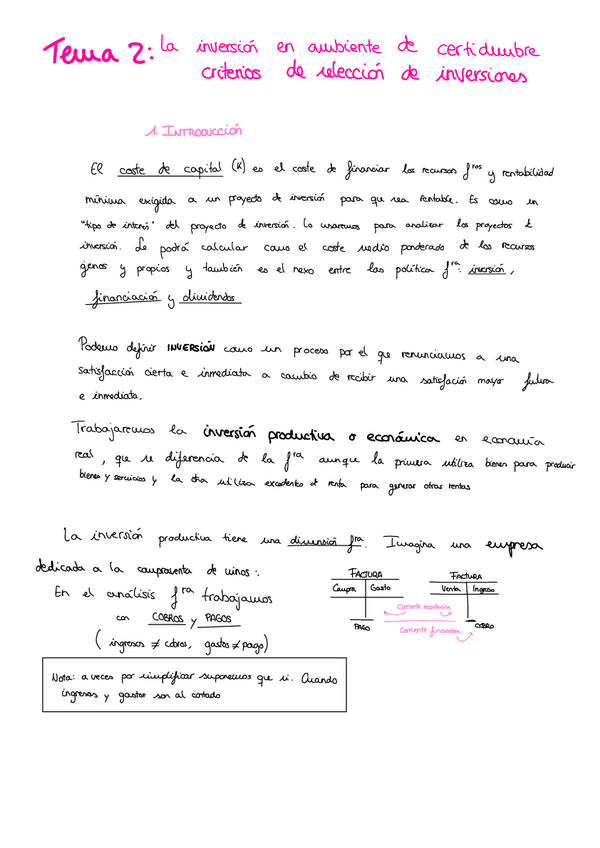 Tema 2: La inversión en ambiente de certidumbre
criterios de selección de inversiones
1. INTRODUCCIÓN
El coste de capital (K) es el coste de financiar los recursos fros y rentabilidad
mínima exigida a un proyecto de inversión para que sea rentable. Es como un
"tipo de interés" del proyecto de inversión. Lo usaremos para analizar los proyectos de
inversión. Se podrá calcular como el coste medio ponderado de los recursos
ajenos y propios y también es el nexo entre las política fra: inversión,
financiación y dividendos
Podemo definir INVERSIÓN como un proceso por el que renunciamos a una
satisfacción cierta e inmediata a cambio de recibir una satisfación mayor futura
e inmediata.
Trabajaremos la inversión productiva o económica en economía
real, que se diferencia de la fra aunque la primera utiliza bienes para producir
bienes y servicios y la otra utiliza excedentes de renta para generar otras rentas
La inversión productiva tiene una dimensión fra. Imagina una empresa
dedicada a la compraventa de vinos:
En el análisis fra trabajamos
con COBROS y PAGOS
(ingresos ≠ cobros, gastos ≠ pago)
FACTURA
Compra Gasto
PAGO
FACTURA
Venta Ingreso
COBRO
Corriente económica
Corriente financiera
Nota: a veces por simplificar suponemos que sí. Cuando
ingresos y gastos son al contado